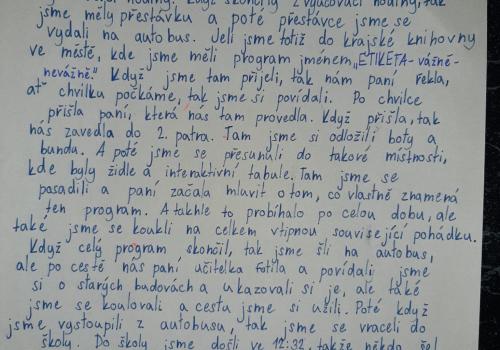 hodiny. Když skončily 2 vyučovací hodiny, tak
jsme měly přestávku a poté přestávce jsme se
vydali na autobus. Jeli jsme totiž do krajské knihovny
ve městě, kde jsme měli program jménem „ETIKETA - vážně-
nevážně." Když jsme tam přijeli, tak nám paní řekla,
ať chvilku počkáme, tak jsme si povídali. Po chvilce
přišla paní, která nás tam provedla. Když přišla, tak
nás zavedla do 2. patra. Tam jsme si odložili boty a
bundu. A poté jsme se přesunuli do takové místnosti,
kde byly židle a interaktivní tabule. Tam jsme se
posadili a paní začala mluvit o tom, co vlastně znamená
ten program. A takhle to probíhalo po celou dobu, ale
také jsme se koukli na celkem vtipnou související pohádku.
Když celý program skončil, tak jsme šli na autobus,
ale po cestě nás paní učitelka fotila a povídali jsme
si o starých budovách a ukazovali si je, ale také
jsme se koulovali a cestu jsme si užili. Poté když
jsme vystoupili z autobusu, tak jsme se vraceli do
školy. Do školy jsme došli ve 12:32, takže někdo šel